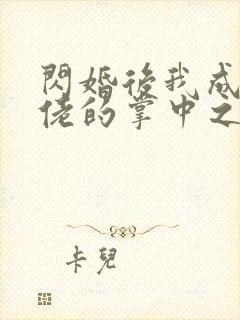 閃婚後我成
佬的掌中之
卡兒